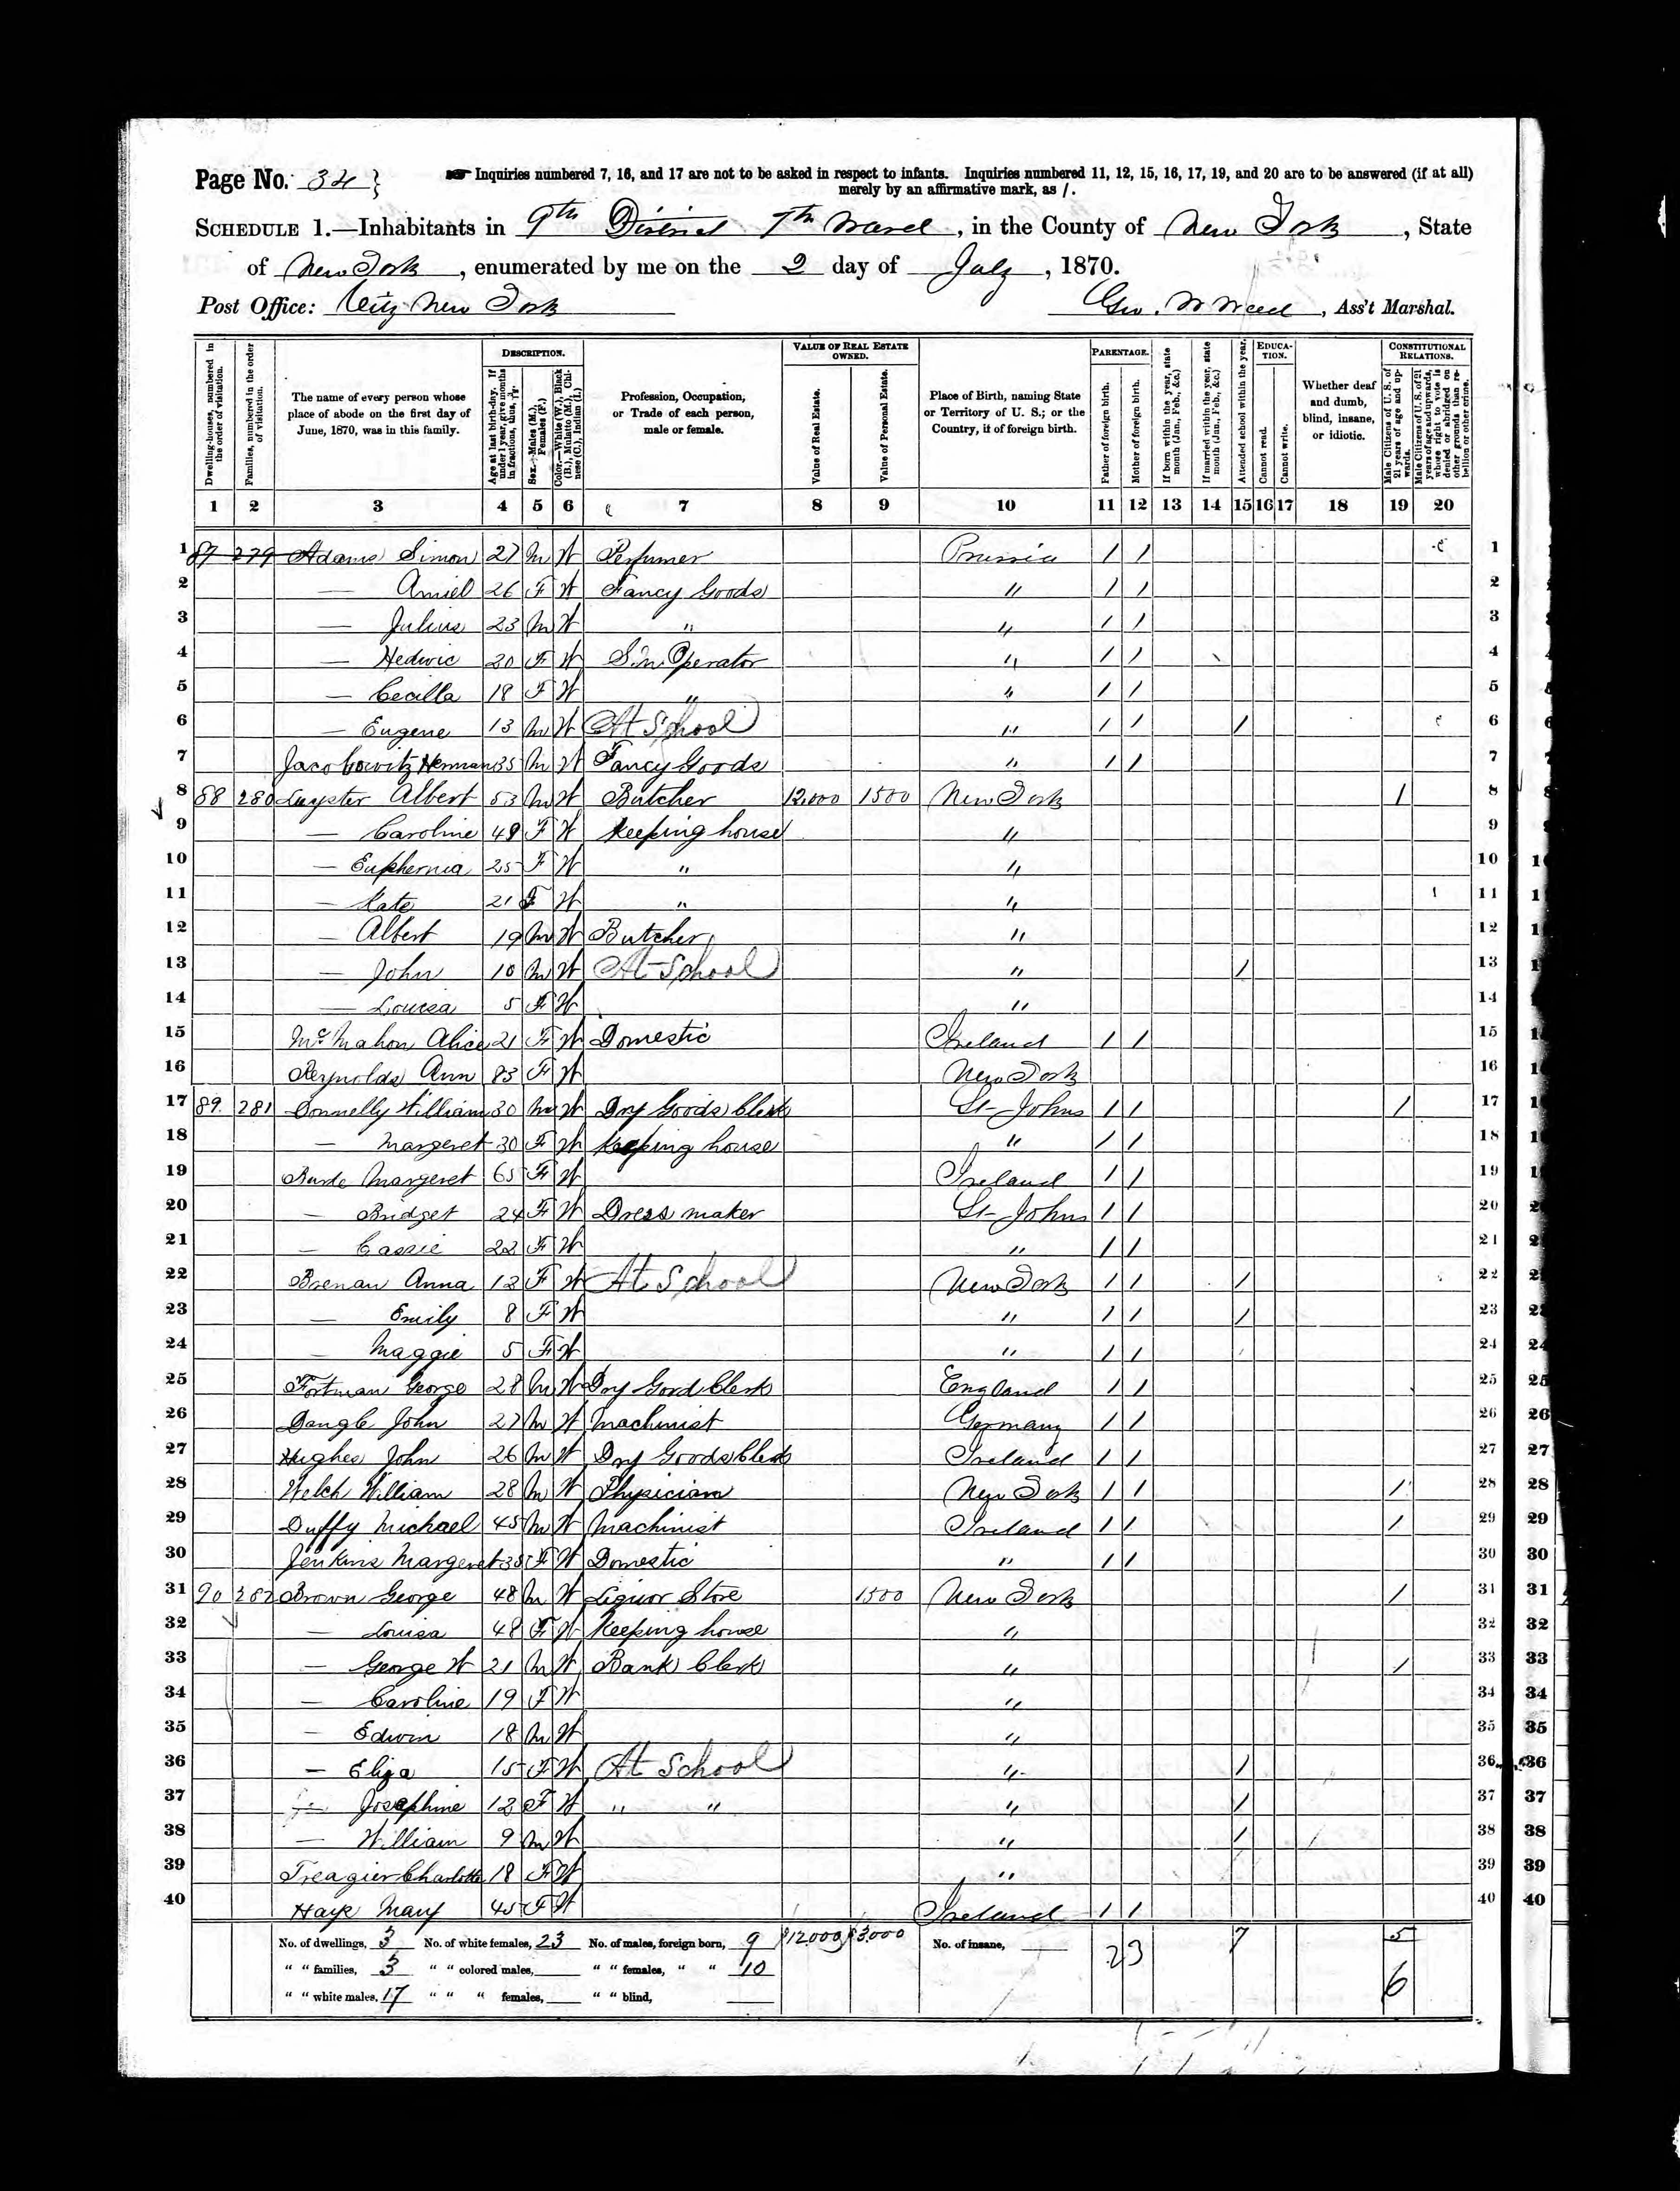 Page No. 34 } Inquiries numbered 7, 16, and 17 are not to be asked in respect to infants. Inquiries numbered 11, 12, 15, 16, 17, 19, and 20 are to be answered (if at all)
merely by an affirmative mark, as /.
SCHEDULE 1.—Inhabitants in 9th District 7th Ward, in the County of New York, State
of New York, enumerated by me on the 2 day of July, 1870.
Post Office: City New York Geo. W, Ass't Marshal.
Dwelling-houses, numbered in the order of visitation.
Families, numbered in the order of visitation.
The name of every person whose place of abode on the first day of June, 1870, was in this family.
DESCRIPTION.
Age at last birth-day. If under 1 year, give months in fractions, thus, 3/12.
Sex.—Males (M.), Females (F.)
Color.—White (W.), Black (B.), Mulatto (M.), Chinese (C.), Indian (I.)
Profession, Occupation, or Trade of each person, male or female.
VALUE OF REAL ESTATE OWNED.
Value of Real Estate.
Value of Personal Estate.
Place of Birth, naming State or Territory of U. S.; or the Country, if of foreign birth.
PARENTAGE.
Father of foreign birth.
Mother of foreign birth.
If born within the year, state month (Jan., Feb., &c.)
If married within the year, state month (Jan., Feb., &c.)
Attended school within the year.
EDUCATION.
Cannot read.
Cannot write.
Whether deaf and dumb, blind, insane, or idiotic.
CONSTITUTIONAL RELATIONS.
Male Citizens of U. S. of 21 years of age and upwards.
Male Citizens of U. S. of 21 years of age and upwards, whose right to vote is denied or abridged on other grounds than rebellion or other crime.
1 2 3 4 5 6 7 8 9 10 11 12 13 14 15 16 17 18 19 20
1 87 279 Adams Simon 27 M W Perfumer Prussia / / 1
2 — Amiel 26 F W Fancy Goods " / / 2
3 — Julius 23 M W " " / / 3
4 — Hedwic 20 F W S.M Operator " / / 4
5 — Cecilla 18 F W " " / / 5
6 — Eugene 13 M W At School " / / / 6
7 Jacobowitz Herman 35 M W Fancy Goods " / / 7
8 88 280 Luyster Albert 53 M W Butcher 12,000 1500 New York / 8
9 — Caroline 48 F W Keeping house " 9
10 — Euphemia 25 F W " " 10
11 — Kate 21 F W " " 11
12 — Albert 19 M W Butcher " 12
13 — John 10 M W At School " / 13
14 — Louisa 5 F W " 14
15 McMahon Alice 21 F W Domestic Ireland / / 15
16 Reynolds Ann 83 F W New York 16
17 89 281 Donnelly William 30 M W Dry Goods Clerk St Johns / / / 17
18 — Margeret 30 F W Keeping house " / / 18
19 Margeret 65 F W Ireland / / 19
20 — Bridget 24 F W Dress maker St Johns / / 20
21 — Cassie 22 F W " / / 21
22 Brenan Anna 12 F W At School New York / / / 22
23 — Emily 8 F W " / / / 23
24 — Maggie 5 F W " / / 24
25 Fortman George 28 M W Dry Good Clerk England / / 25
26 Dangle John 27 M W Machinist Germany / / 26
27 Hughes John 26 M W Dry Goods Clerk Ireland / / 27
28 Welch William 28 M W Physician New York / / / 28
29 Duffy Michael 45 M W Machinist Ireland / / / 29
30 Jenkins Margeret 35 F W Domestic " / / 30
31 90 282 Brown George 48 M W Liquor Store 1500 New York / 31
32 — Louisa 48 F W Keeping house " 32
33 — George W 21 M W Bank Clerk " / 33
34 — Caroline 19 F W " 34
35 — Edwin 18 M W " 35
36 — Eliza 15 F W At School " / 36
37 — Josephine 12 F W " " " / 37
38 — William 9 M W " / 38
39 Treagier Charlotte 18 F W " 39
40 Haye Mary 45 F W Ireland / / 40
No. of dwellings, 3 No. of white females, 23 No. of males, foreign born, 9 $12.000 $3.000 No. of insane, 23 7 5
" " families, 3 " " colored males, " " females, " " 10 6
" " white males, 17 " " " females, " " blind,